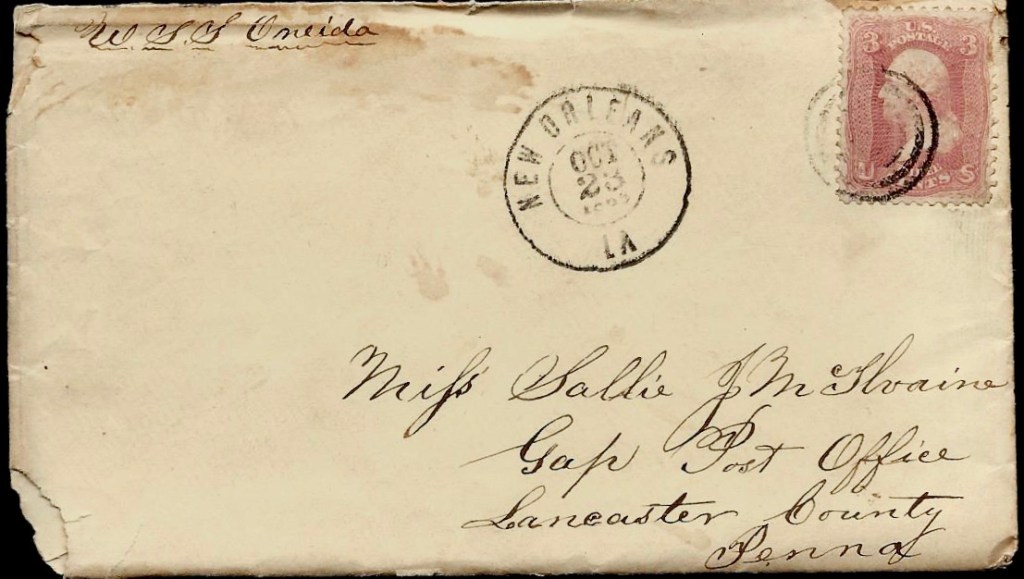 U.S.S Oneida
3 U.S. POSTAGE 3
U S
NEW ORLEANS
OCT
23
LA
Miss Sallie J McIlvaine
Gap Post Office
Lancaster County
Penna